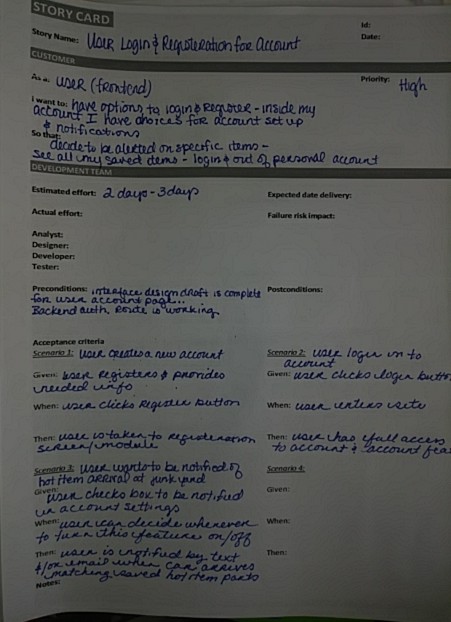 STORY CARD
Id:
Story Name: User Login & Registeration for Account
Date:
CUSTOMER
As a: user (frontend)
Priority: High
I want to: have options to login & Register - inside my
account I have choices for account set up
& notifications
So that: decide to be alerted on specific items -
see all my saved items - login & out of personal account
DEVELOPMENT TEAM
Estimated effort: 2 days - 3 days
Expected date delivery:
Actual effort:
Failure risk impact:
Analyst:
Designer:
Developer:
Tester:
Preconditions: interface design draft is complete
for user account page...
Backend auth. Route is working.
Postconditions:
Acceptance criteria
Scenario 1: user creates a new account
Given: user registers & provides
needed info
When: user clicks Register button
Then: user is taken to registeration
screen/module
Scenario 2: user login in to
account
Given: user clicks login button
When: user enters site
Then: user has full access
to account & account fea
Scenario 3: user wants to be notified of
hot item arrival at junk yard
Given: user checks box to be notified
in account settings
When: user can decide whenever
to turn this feature on/off
Then: user is notified by text
&/or email when car arrives
matching saved hot item parts
Scenario 4:
Given:
When:
Then:
Notes: